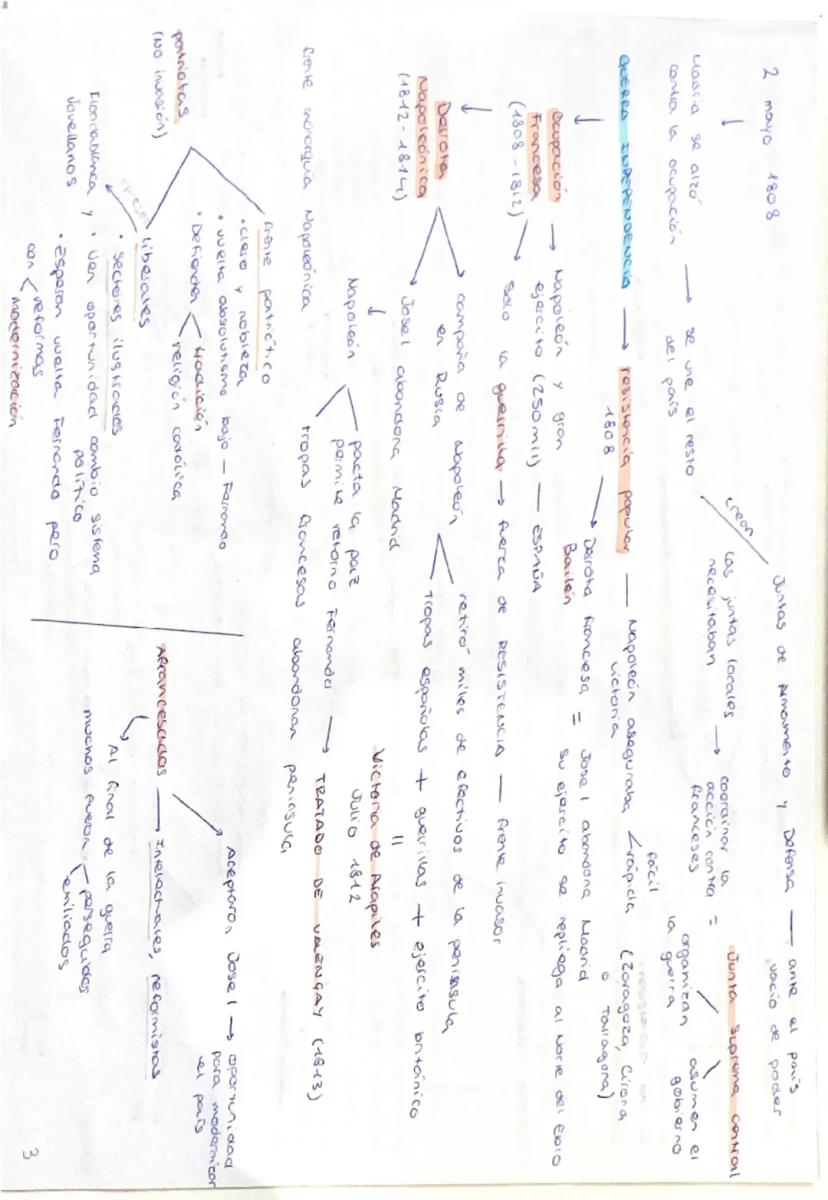 2 mayo 1808
Madrid se alzó
contra la ocupación
se une el resto
del país
crean
Juntas de Armamento y Defensa — ante el país
vacío de poder
las juntas locales
necesitaban
coordinar la
acción contra =
franceses
Junta Suprema Central
organizan
la guerra
asumen el
gobierno
GUERRA INDEPENDENCIA
resistencia popular
1808
Napoleón aseguraba
victoria
fácil
rápida
(Zaragoza, Girona
o Tarragona)
Derrota francesa = José I abandona Madrid
Bailén
su ejército se repliega al Norte del Ebro
Ocupación
Francesa
(1808-1812)
Napoleón y gran
ejército (250 mil) — ESPAÑA
Solo la guerrilla
fuerza de RESISTENCIA — frente invasor
Derrota
Napoleónica
(1812-1814)
campaña de Napoleón
en Rusia
retiró miles de efectivos de la península
tropas españolas + guerrillas + ejército británico
José I abandona Madrid
=
Victoria de Arapiles
Julio 1812
Napoleón
pacta la paz
permite retorno Fernando
TRATADO DE VALENÇAY (1813)
tropas francesas abandonan península
frente monarquía Napoleónica
patriotas
(No invasión)
frente patriótico
• Clero y nobleza
• vuelta absolutismo bajo — Fernando
• Defienden
tradición
religión católica
Liberales
• Sectores ilustrados
• Ven oportunidad cambio sistema
político
• Esperan vuelta Fernando pero
con
reformas
modernización
Floridablanca y
Jovellanos
Afrancesados
Aceptaron José I
oportunidad
para modernizar
el país
Intelectuales, reformistas
Al final de la guerra
muchos fueron
perseguidos
exiliados
3